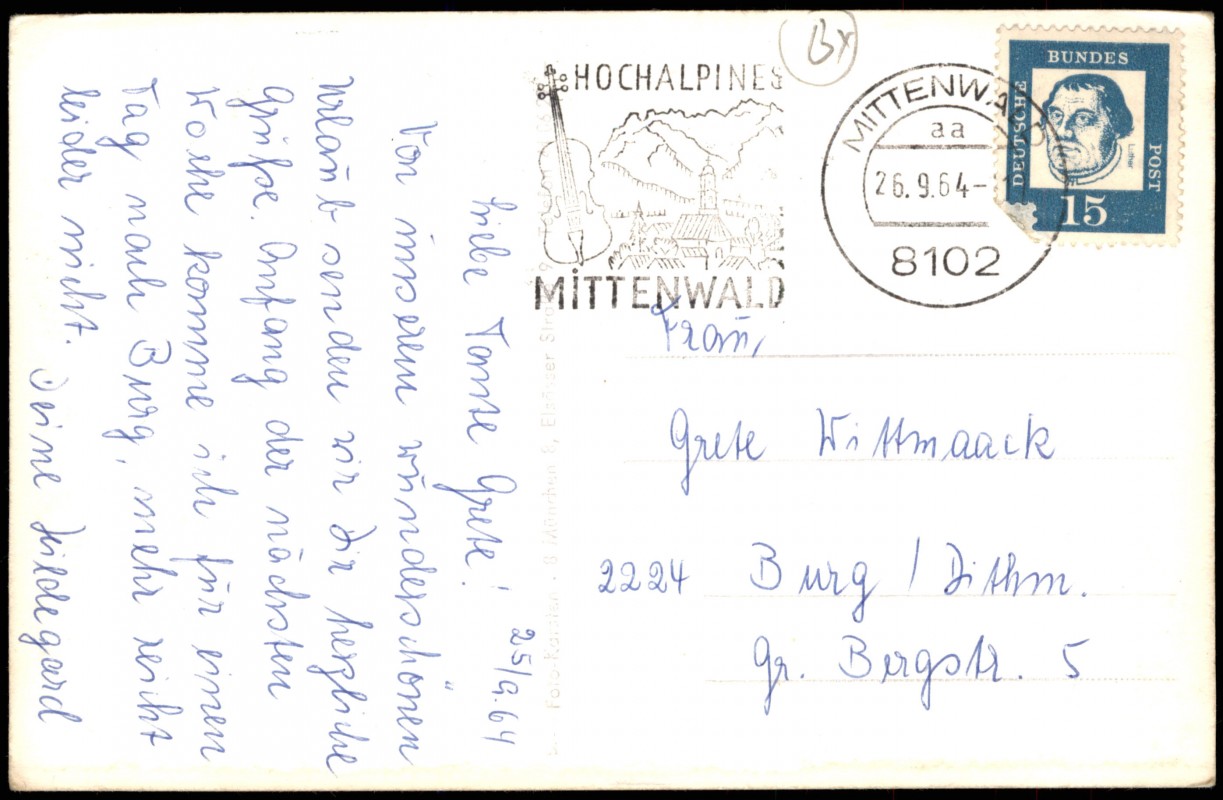 25/9.64
Liebe Tante Grete!
Von unserem wunderschönen
Urlaub senden wir Dir herzliche
Grüße. Anfang der nächsten
Woche komme ich für einen
Tag nach Burg, mehr reicht
leider nicht.
Deine Hildegard
HOCHALPINES
MITTENWALD
MITTENWALD
aa
26.9.64-
8102
DEUTSCHE
BUNDES
POST
Luther
15
Frau,
Grete Wittmaack
2224 Burg / Dithm.
Gr. Bergstr. 5
8 München 8, Elsässer Straße